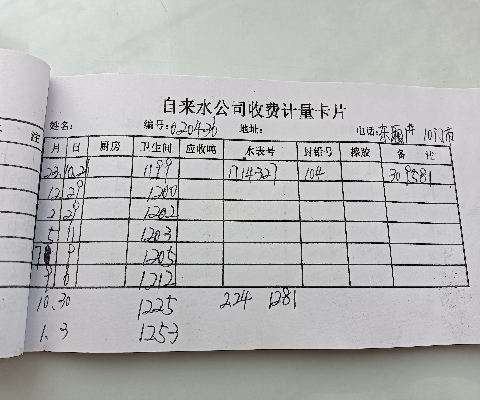 自来水公司收费计量卡片
注 姓名: 编号:020436 地址: 电话: 10门市
月 日 厨房 卫生间 应收吨 水表号 封铅号 橡胶 备 注
1199 1714327 104 309581
12 29 1200
2 29 1202
5 11 1203
9 1205
8 1212
10.30 1225 2.24 1281
1.3 1253